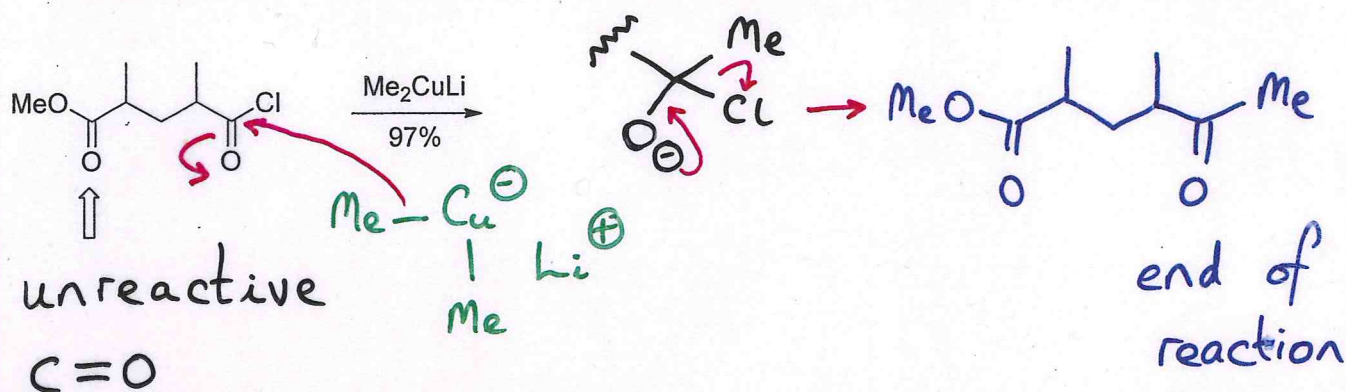 MeO
Cl
O
O
Me₂CuLi
97%
unreactive
C=O
Me–Cu⊖
Me
Li⊕
Me
Cl
O⊖
MeO
Me
O
O
end of
reaction